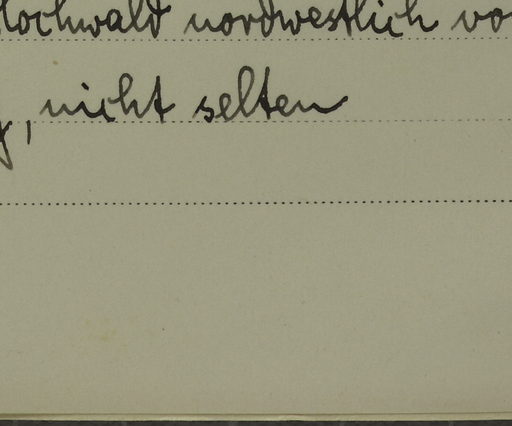 Hochwald nordwestlich vo
, nicht selten